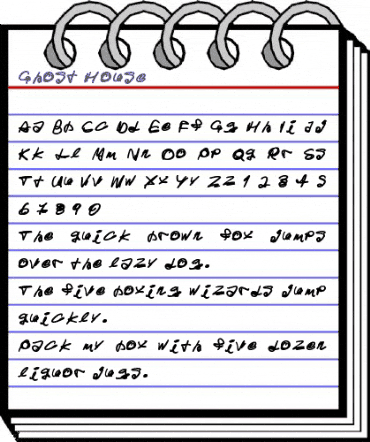 Ghost House
Aa Bb Cc Dd Ee Ff Gg Hh Ii Jj
Kk Ll Mm Nn Oo Pp Qq Rr Ss
Tt Uu Vv Ww Xx Yy Zz 1 2 3 4 5
6 7 8 9 0
The quick brown fox jumps
over the lazy dog.
The five boxing wizards jump
quickly.
Pack my box with five dozen
liquor jugs.